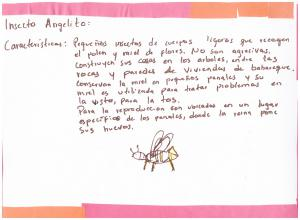 Insecto Angelito:
Características: Pequeños insectos de cuerpos ligeros que recogen
el polen y miel de flores. No son agresivas,
construyen sus casas en los arboles, entre las
rocas y paredes de viviendas de bahareque,
conservan la miel en pequeños panales y su
miel es utilizada para tratar problemas en
la vista, para la tos.
Para la reproducción son ubicadas en un lugar
especifico de los panales, donde la reina pone
sus huevos.